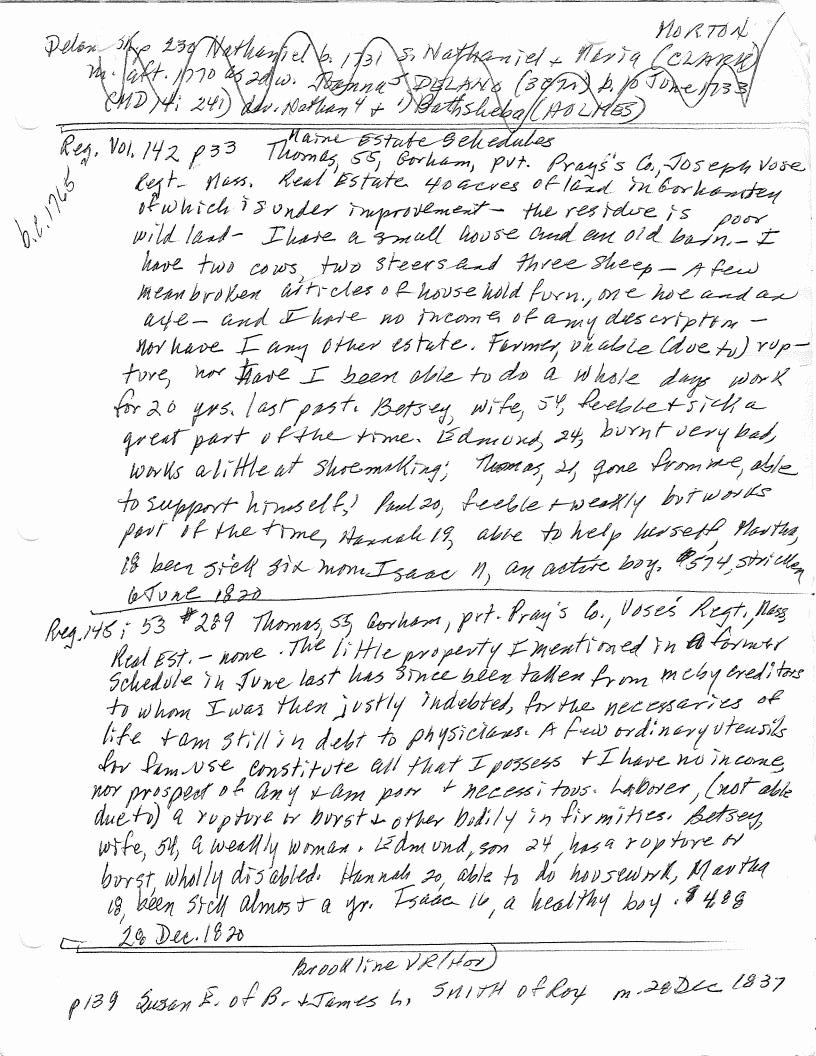 MORTON
Delano p 230 Nathaniel b. 1731 s. Nathaniel + Maria (CLARK)
m. aft. 1770 as 2d w. Joanna5 DELANO b. 10 June 1733
(MD 14: 241) dau. Nathan4 + 1) Bathsheba (HOLMES)
Maine Estate Schedules
Reg. Vol. 142 p33 Thomas, 55, Gorham, pvt. Prays's Co., Joseph Vose
b.c. 1765
Regt- Mass. Real Estate 40 acres of land in Gorham ten
of which is under improvement - the residue is poor
wild land - I have a small house and an old barn. - I
have two cows, two steers and three sheep - A few
mean broken articles of household furn., one hoe and an
axe - and I have no income, of any descripton -
nor have I any other estate. Farmer, unable (due to) rup-
ture, nor have I been able to do a whole days work
for 20 yrs. last past. Betsey, wife, 54, feeble + sick a
great part of the time. Edmund, 24, burnt very bad,
works a little at shoemaking; Thomas, 21, gone from me, able
to support himself; Paul 20, feeble + weakly but works
part of the time, Hannah 19, able to help herself, Martha,
18 been sick six mon. Isaac 11, an active boy. $574, stricken
6 June 1820
Reg. 145: 53 #289 Thomas, 55, Gorham, pvt. Pray's Co., Vose's Regt., Mass
Real Est. - none. The little property I mentioned in a former
Schedule in June last has since been taken from me by creditors
to whom I was then justly indebted, for the necessaries of
life + am still in debt to physicians. A few ordinary utensils
for fam. use constitute all that I possess + I have no income,
nor prospect of any + am poor + necessitous. Laborer, (not able
due to) a rupture or burst + other bodily infirmities. Betsey,
wife, 54, a weakly woman. Edmund, son 24, has a rupture or
burst, wholly disabled. Hannah 20, able to do housework, Martha
18, been sick almost a yr. Isaac 16, a healthy boy. $488
28 Dec. 1820
Brookline VR (Hor)
p139 Susan E. of B. + James L. SMITH of Rox m. 28 Dec 1837